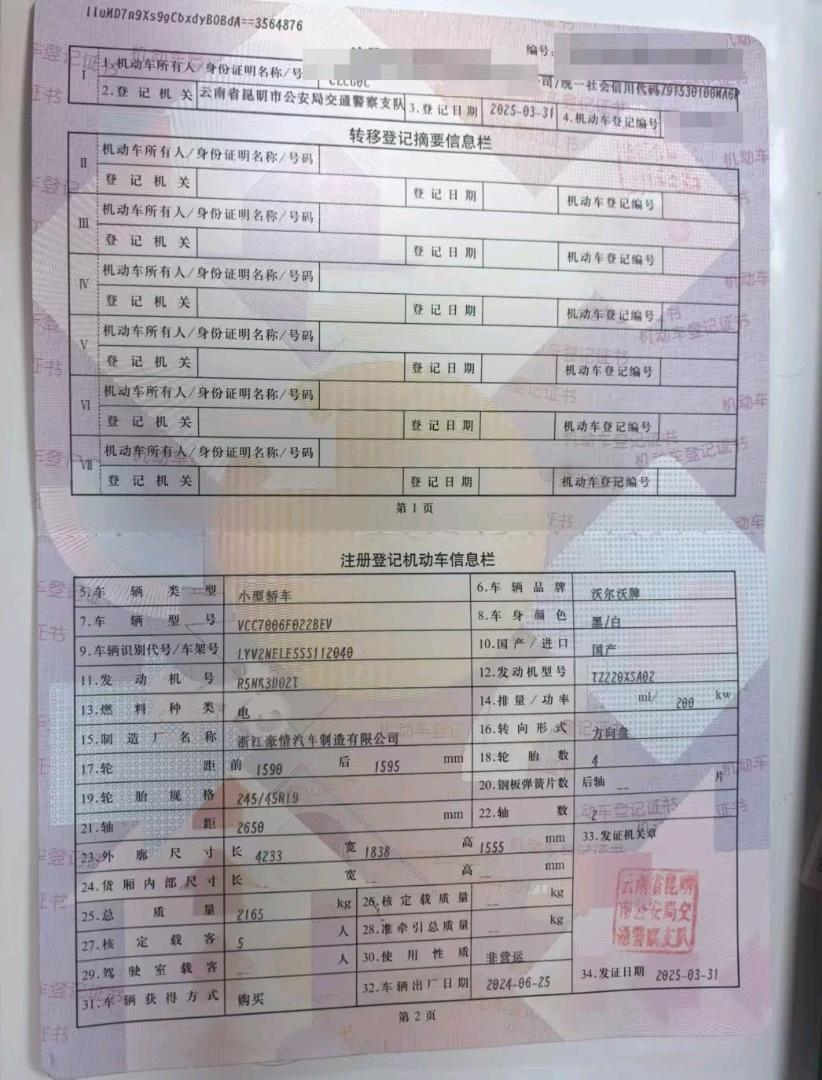 lluMD7n9Xs9gCbxdyBOBdA==3564876
编号:
I 1.机动车所有人/身份证明名称/号 司/统一社会信用代码/91530100MA6P
2.登记机关 云南省昆明市公安局交通警察支队 3.登记日期 2025-03-31 4.机动车登记编号
转移登记摘要信息栏
II 机动车所有人/身份证明名称/号码
登记机关 登记日期 机动车登记编号
III 机动车所有人/身份证明名称/号码
登记机关 登记日期 机动车登记编号
IV 机动车所有人/身份证明名称/号码
登记机关 登记日期 机动车登记编号
V 机动车所有人/身份证明名称/号码
登记机关 登记日期 机动车登记编号
VI 机动车所有人/身份证明名称/号码
登记机关 登记日期 机动车登记编号
VII 机动车所有人/身份证明名称/号码
登记机关 登记日期 机动车登记编号
第1页
注册登记机动车信息栏
5.车辆类型 小型轿车 6.车辆品牌 沃尔沃牌
7.车辆型号 VCC7006F022BEV 8.车身颜色 黑/白
9.车辆识别代号/车架号 LYV2NELE5SS112040 10.国产/进口 国产
11.发动机号 R5NK3D02T 12.发动机型号 TZ220XSA02
13.燃料种类 电 14.排量/功率 __ ml/ 200 kw
15.制造厂名称 浙江豪情汽车制造有限公司 16.转向形式 方向盘
17.轮距 前 1590 后 1595 mm 18.轮胎数 4
19.轮胎规格 245/45R19 20.钢板弹簧片数 后轴 __ 片
21.轴距 2650 mm 22.轴数 2
23.外廓尺寸 长 4233 宽 1838 高 1555 mm 33.发证机关章
24.货厢内部尺寸 长 __ 宽 __ 高 __ mm
25.总质量 2165 kg 26.核定载质量 __ kg
27.核定载客 5 人 28.准牵引总质量 __ kg
29.驾驶室载客 __ 人 30.使用性质 非营运
31.车辆获得方式 购买 32.车辆出厂日期 2024-06-25 34.发证日期 2025-03-31
云南省昆明
市公安局交
通警察支队
第2页